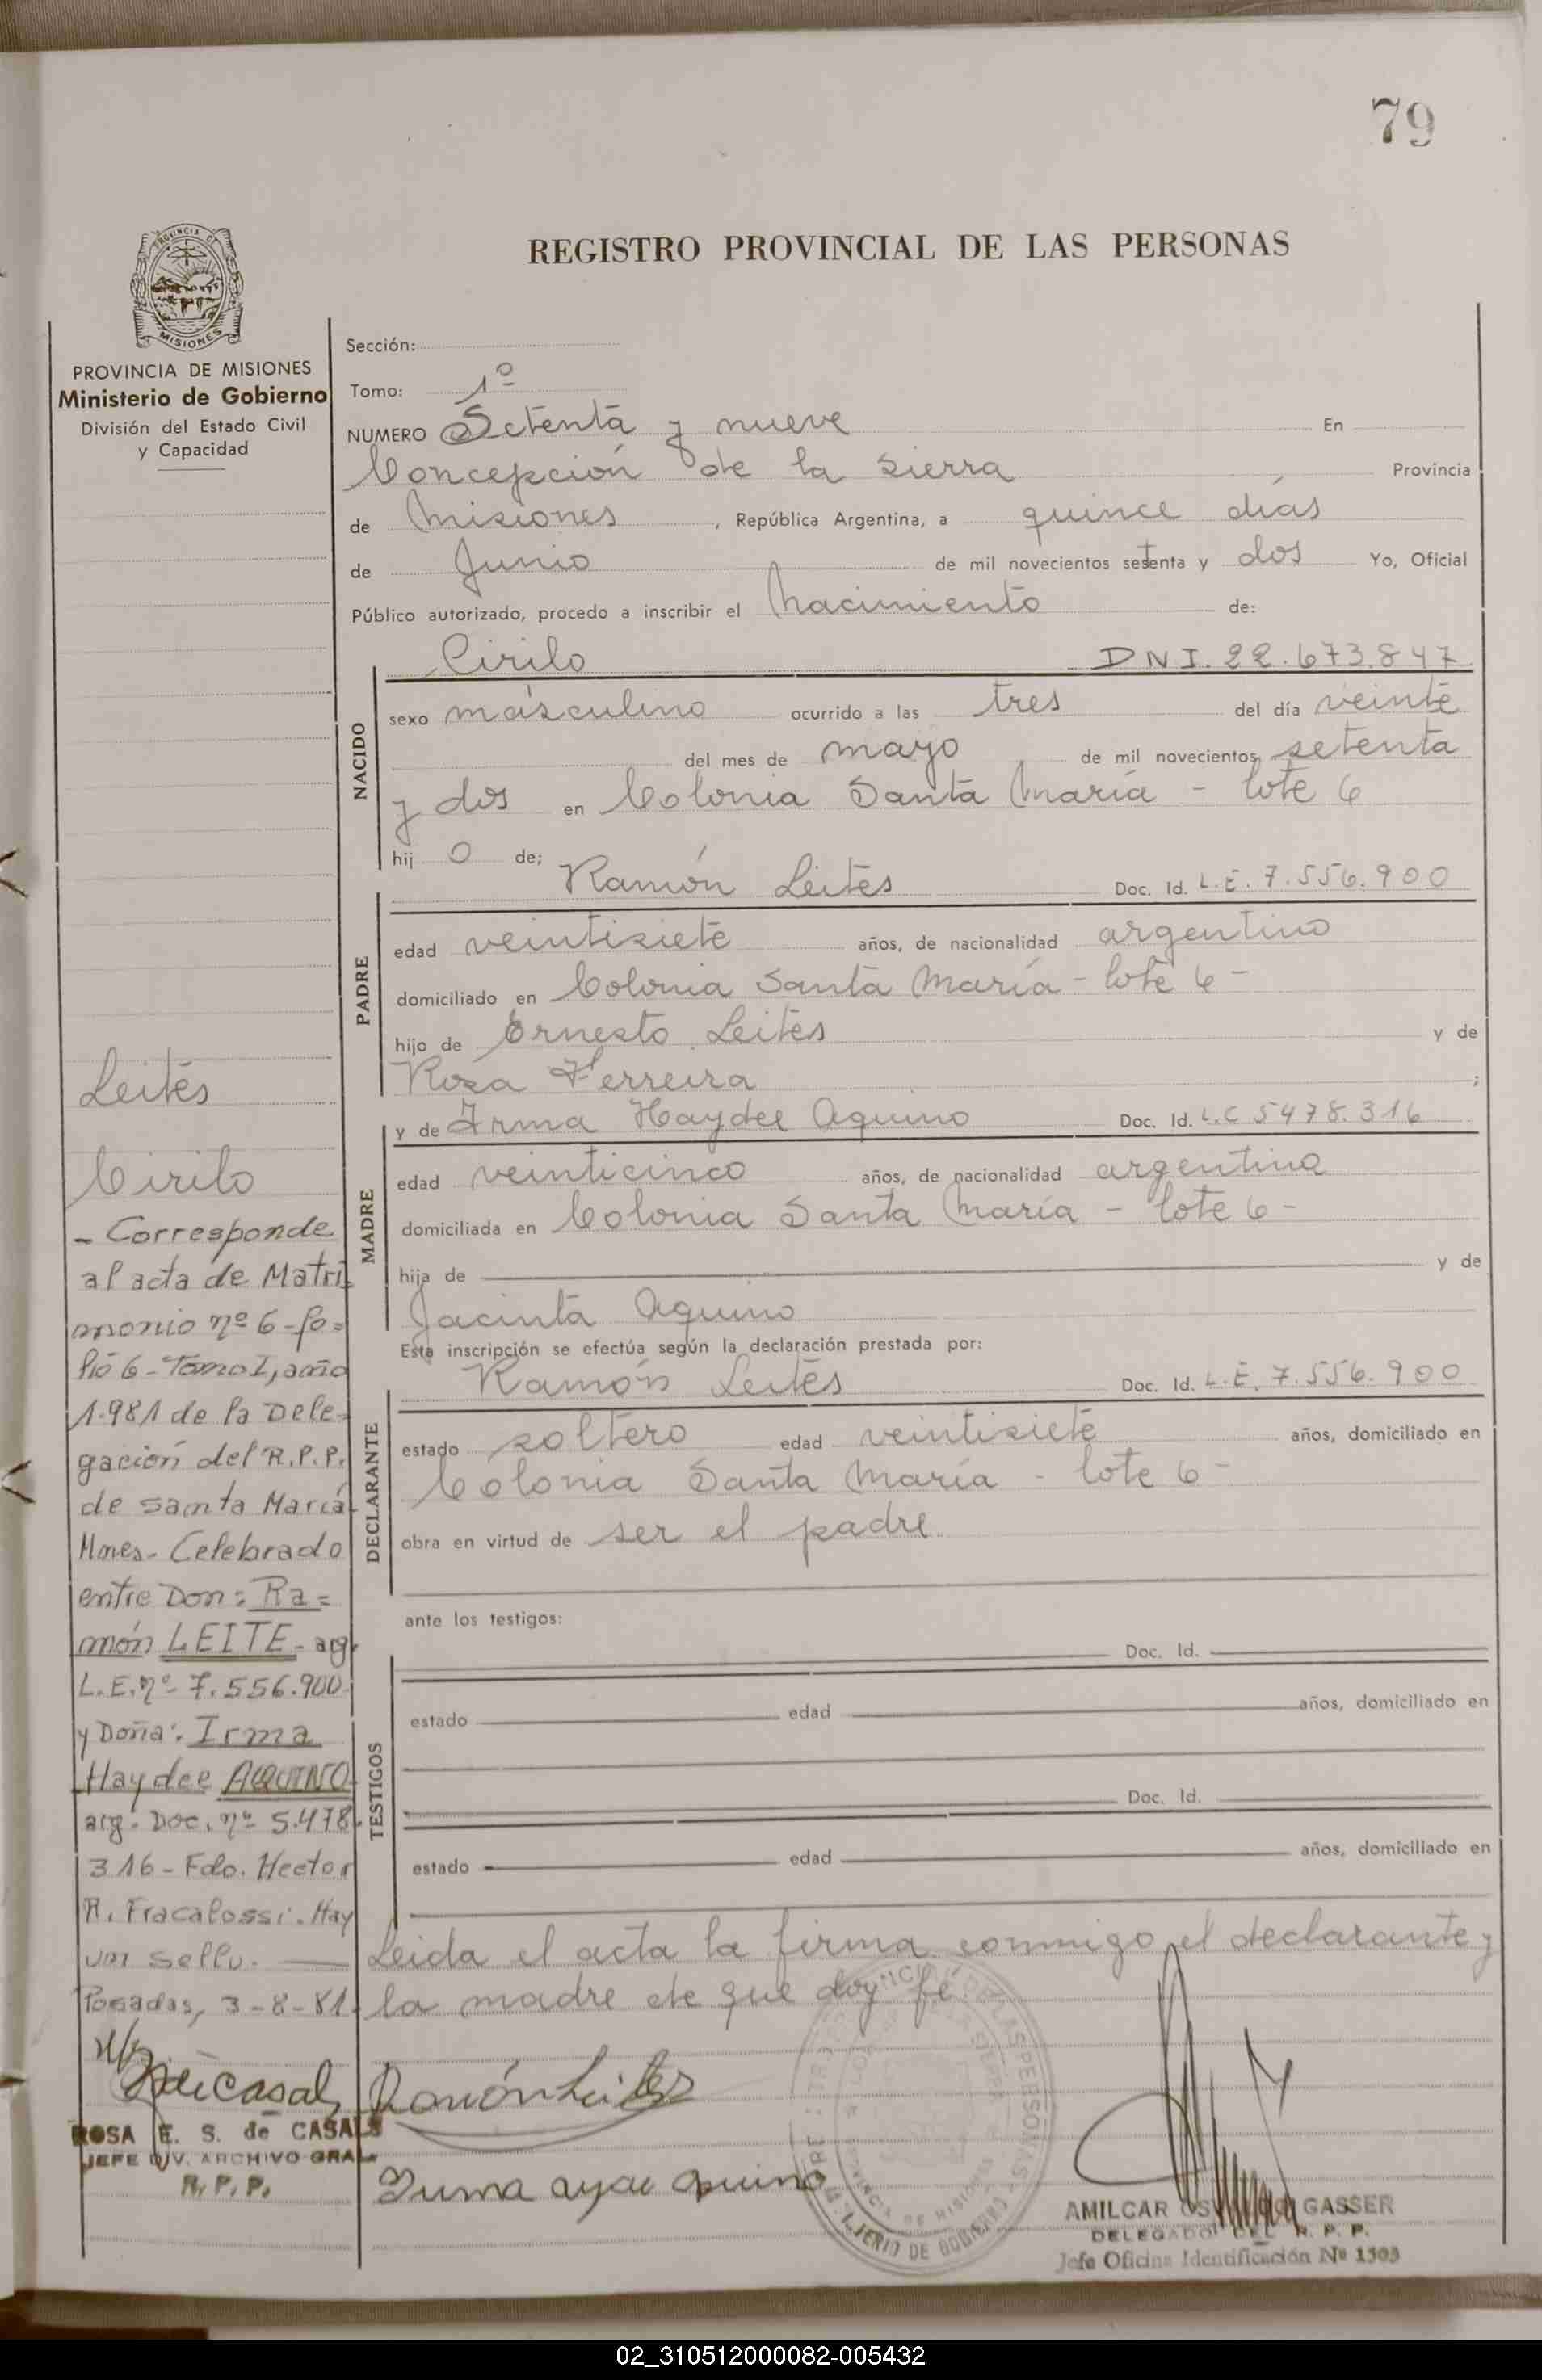 79
REGISTRO PROVINCIAL DE LAS PERSONAS
PROVINCIA DE MISIONES
Ministerio de Gobierno
División del Estado Civil
y Capacidad
Sección:
Tomo: 1º
NUMERO Setenta y nueve En
Concepción de la Sierra Provincia
de Misiones, República Argentina, a quince días
de Junio de mil novecientos setenta y dos Yo, Oficial
Público autorizado, procedo a inscribir el Nacimiento de:
Cirilo DNI. 22.673.847
NACIDO
sexo másculino ocurrido a las tres del día veinte
del mes de mayo de mil novecientos setenta
y dos en Colonia Santa María - lote 6
hij o de;
Ramón Leites Doc. Id. L.E. 7.556.900
PADRE
edad veintisiete años, de nacionalidad argentino
domiciliado en Colonia Santa María - lote 6 -
hijo de Ernesto Leites y de
Rosa Ferreira ;
y de Irma Haydee Aquino Doc. Id. L.C 5478.316
MADRE
edad veinticinco años, de nacionalidad argentina
domiciliada en Colonia Santa María - lote 6 -
hija de y de
Jacinta Aquino
Esta inscripción se efectúa según la declaración prestada por:
Ramón Leites Doc. Id. L.E. 7.556.900
DECLARANTE
estado soltero edad veintisiete años, domiciliado en
Colonia Santa María - lote 6 -
obra en virtud de ser el padre.
ante los testigos:
Doc. Id.
TESTIGOS
estado edad años, domiciliado en
Doc. Id.
estado edad años, domiciliado en
Leida el acta la firma conmigo el declarante y
la madre de que doy fé
Ramón Leites
Irma ayde Aquino
AMILCAR GASSER
DELEGADO DEL R. P. P.
Jefe Oficina Identificación Nº 1503
Leites
Cirilo
- Corresponde
al acta de Matri
monio nº 6 - fo=
lió 6 - Tomo I, año
1.981 de la Dele-
gación del R.P.P.
de santa María
Mnes. Celebrado
entre Don: Ra=
món LEITE - arg.
L.E. nº 7.556.900
y Doña: Irma
Haydee AQUINO
arg. Doc. nº 5.478.
316 - Fdo. Hector
R. Fracalossi. Hay
un sello.
Posadas, 3-8-81.
ROSA E. S. de CASALS
JEFE DIV. ARCHIVO GRAL
R. P. P.
02_310512000082-005432